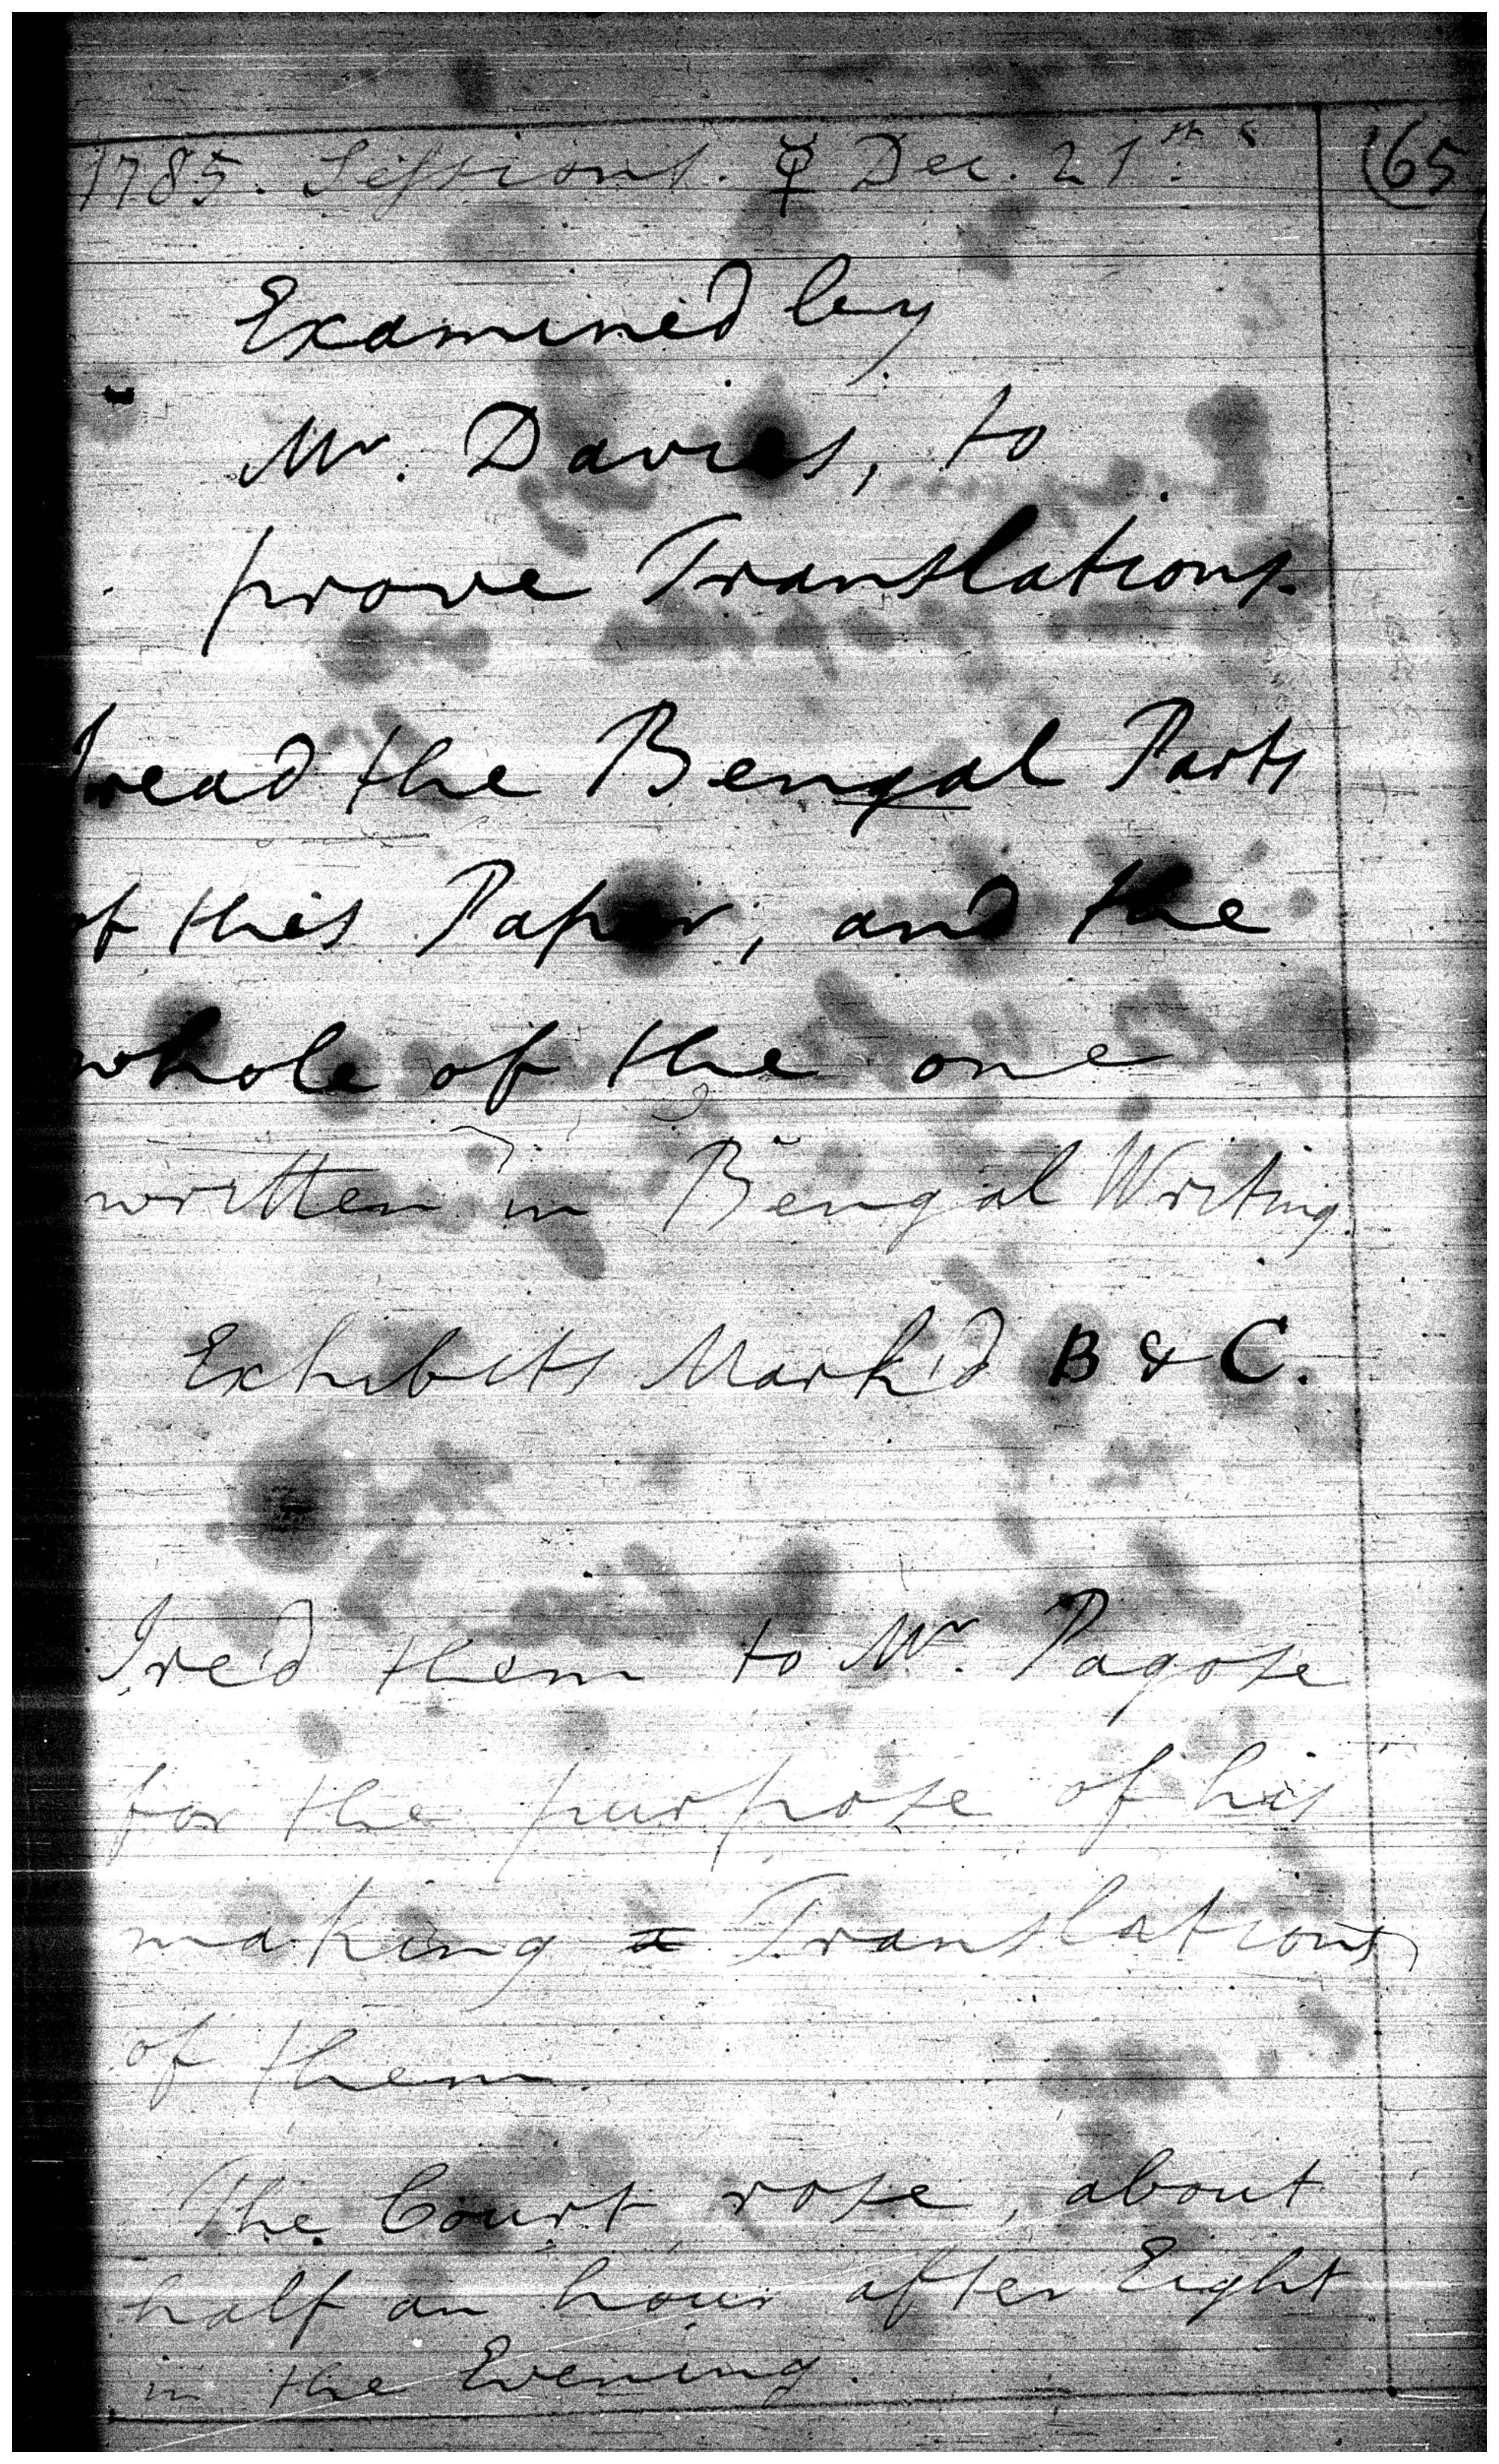 1785. Sessions. ☿ Dec. 21st. (65
Examined by
Mr. Davies, to
prove Translations.
I read the Bengal Parts
of this Paper, and the
whole of the one
written in Bengal Writing.
Exhibits Mark'd B & C.
I re'd them to Mr. Pagose
for the purpose of his
making a Translations
of them.
The Court rose, about
half an hour after Eight
in the Evening.